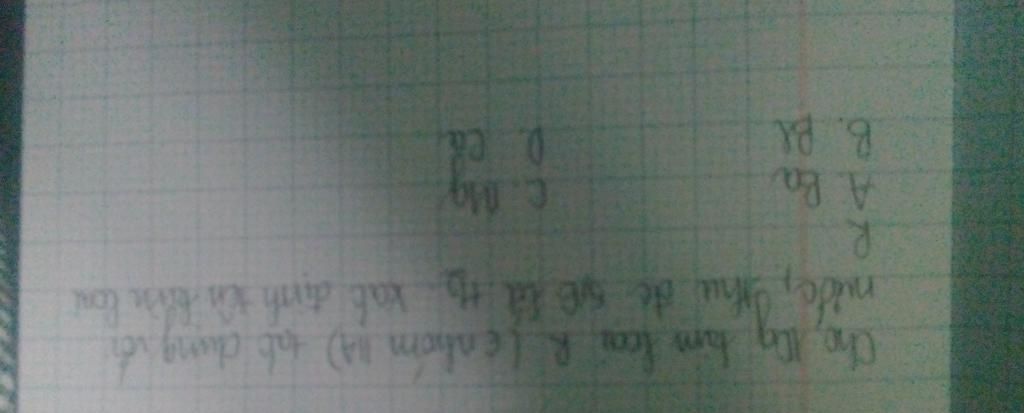 Cho 10g kim loại R (∈ nhóm IIA) tác dụng với
nước, thu đc lít H2. xác định tên kim loại
R
A. Ba C. Mg
B. Be D. Ca